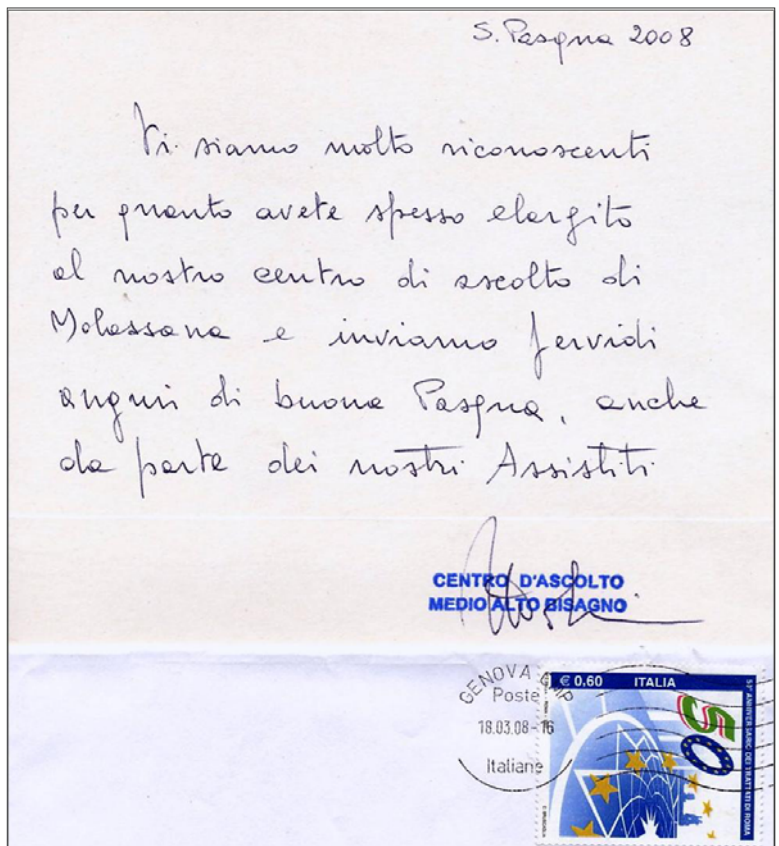 S. Pasqua 2008
Vi siamo molto riconoscenti
per quanto avete spesso elargito
al nostro centro di ascolto di
Molassana e inviamo fervidi
auguri di buona Pasqua, anche
da parte dei nostri Assistiti
CENTRO D'ASCOLTO
MEDIO ALTO BISAGNO
GENOVA CMP
Poste
18.03.08-16
Italiane
€ 0.60 ITALIA
50
50° ANNIVERSARIO DEI TRATTATI DI ROMA